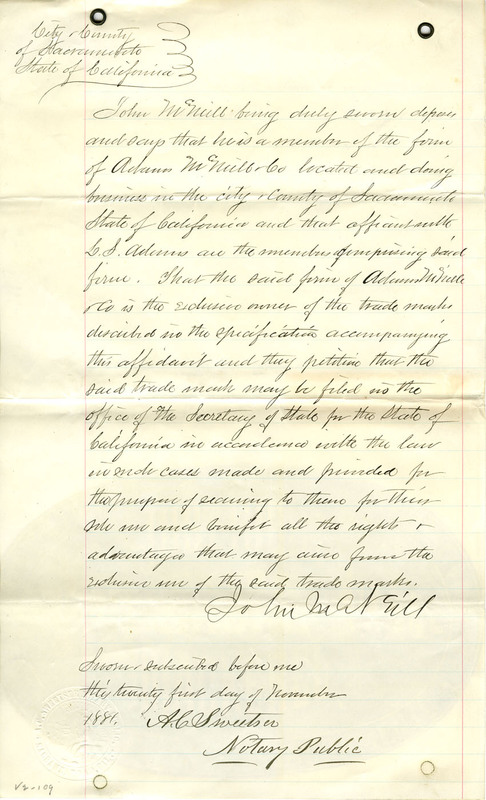 City & County
of Sacramento
State of California
John McNeill being duly sworn deposes
and says that he is a member of the firm
of Adams McNeill & Co located and doing
business in the city & County of Sacramento
State of California and that affiant with
C. S. Adams are the members comprising said
firm. That the said firm of Adams McNeill
& Co is the exclusive owner of the trade marks
described in the specification accompanying
this affidavit and they petition that the
said trade mark may be filed in the
office of the Secretary of State for the State of
California in accordance with the law
in such cases made and provided for
the purpose of securing to them for their
sole use and benefit all the rights &
advantages that may arise from the
exclusive use of the said trade marks.
John McNeill
Sworn & subscribed before me
this twenty first day of November
1881. A. C. Sweetser
Notary Public
V2-109